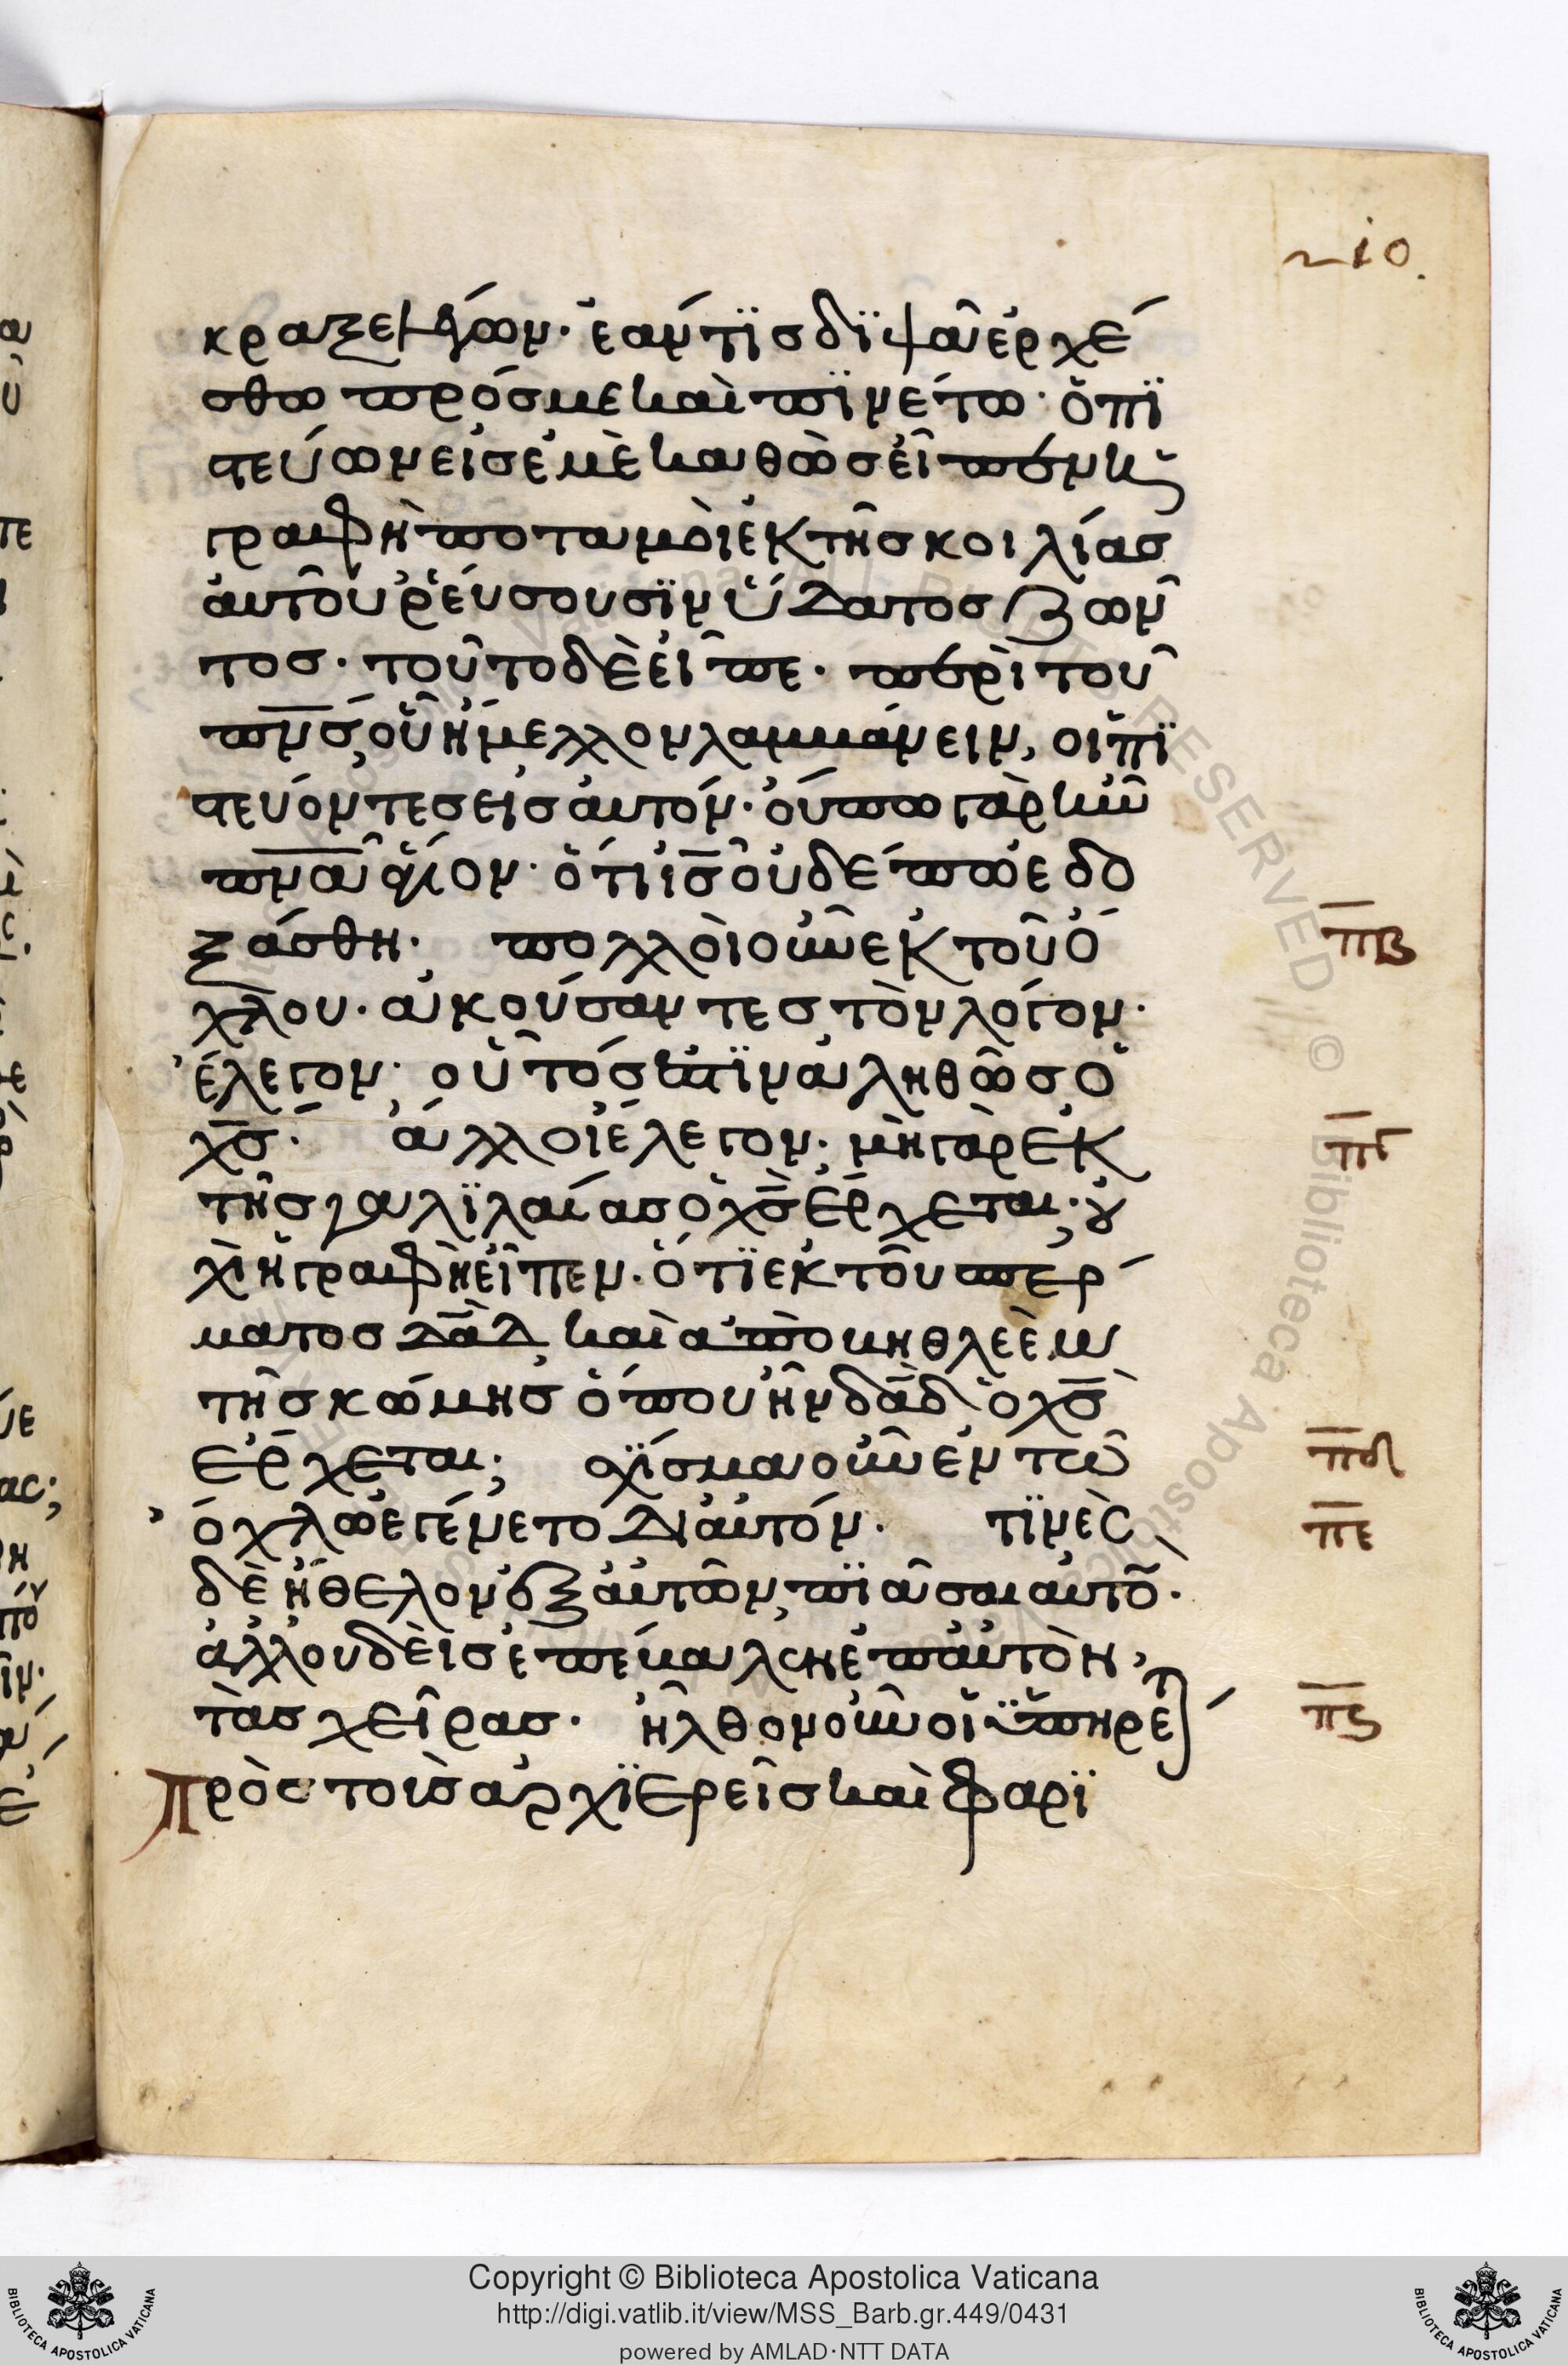 210.
κραξε λέγων· ἐάν τϊσ δϊψᾶ ἐρχέ
σθω πρόσ με καὶ πϊνέτω· ὁ πϊ
στεύων εἰσ ἐμὲ καθὼσ εἶπεν ἡ
γραφὴ ποταμοὶ ἐκ τῆσ κοιλίασ
αὐτοῦ ῥεύσουσϊν ὕδατοσ ζῶν
τοσ· τοῦτο δὲ εἶπε· περὶ τοῦ
πν̅σ̅, οὗ ἤμελλον λαμβάνειν, οἱ πϊ
στεύοντεσ εἰσ αὐτόν· οὔπω γὰρ ἦν
πν̅α̅ ἅγιον· ὅτι ι̅σ̅ οὐδέπω ἐδο
ξάσθη· πολλοὶ οὖν ἐκ τοῦ ὄ
χλου· ἀκούσαντεσ τὸν λόγον·
ἔλεγον· οὗτόσ ἐστϊν ἀληθῶσ ὁ
χ̅σ̅· ἄλλοι ἔλεγον· μὴ γὰρ ἐκ
τῆσ γαλϊλαίασ ὁ χ̅σ̅ ἔρχεται; οὐ
χὶ ἡ γραφὴ εἶπεν· ὅτϊ ἐκ τοῦ σπέρ
ματοσ δα̅δ̅ καὶ ἀπὸ βηθλεὲμ
τῆσ κώμησ ὅπου ἦν δα̅δ̅ ὁ χ̅σ̅
ἔρχεται; σχΐσμα οὖν ἐν τῶ
ὄχλω ἐγένετο δι' αὐτόν· τϊνὲσ
δὲ ἤθελον ἐξ αὐτῶν, πϊᾶσαι αὐτο̅·
ἀλλ' οὐδεὶσ ἐπέβαλεν ἐπ' αὐτὸν,
τὰσ χεῖρασ· ἦλθον οὖν οἱ ϋπηρέτ
πρὸσ τοὺσ ἀρχϊερεῖσ καὶ φαρϊ
π̅β̅
π̅γ̅
π̅δ̅
π̅ε̅
π̅ϛ̅
Copyright © Biblioteca Apostolica Vaticana
http://digi.vatlib.it/view/MSS_Barb.gr.449/0431
powered by AMLAD·NTT DATA